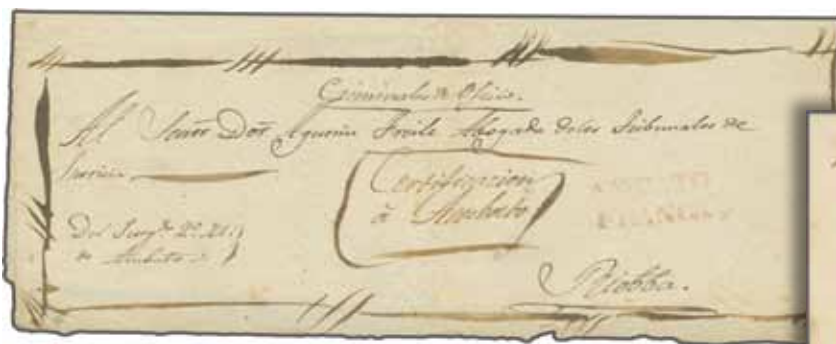 Criminales de Oficio.
Al Señor Dor Agustin Freile Abogado de los Tribunales de
Justicia
Certificacion
à Ambato
AMBATO
FRANCA
Del Juzgo 2º
de Ambato
Riobba.